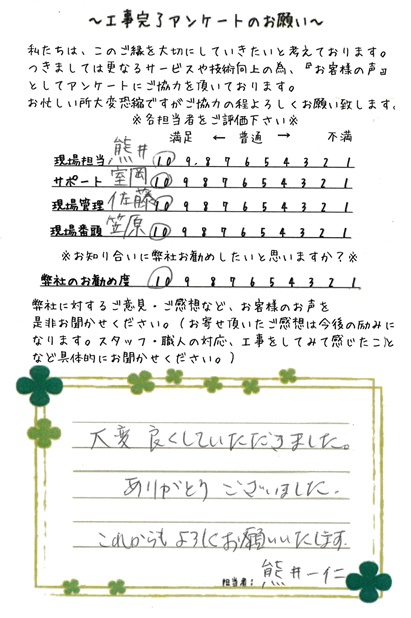 ～工事完了アンケートのお願い～
私たちは、このご縁を大切にしていきたいと考えております。
つきましては更なるサービスや技術向上の為、『お客様の声』
としてアンケートにご協力を頂いております。
お忙しい所大変恐縮ですがご協力の程よろしくお願い致します。
※各担当者をご評価下さい※
満足 ← 普通 → 不満
現場担当 熊井 10 9 8 7 6 5 4 3 2 1
サポート 室岡 10 9 8 7 6 5 4 3 2 1
現場管理 佐藤 10 9 8 7 6 5 4 3 2 1
現場番頭 笠原 10 9 8 7 6 5 4 3 2 1
※お知り合いに弊社お勧めしたいと思いますか？※
弊社のお勧め度 10 9 8 7 6 5 4 3 2 1
弊社に対するご意見・ご感想など、お客様のお声を
是非お聞かせください。（お寄せ頂いたご感想は今後の励みに
なります。スタッフ・職人の対応、工事をしてみて感じたこと
など具体的にお聞かせください。）
大変 良くしていただきました。
ありがとう ございました。
これからも よろしくお願いいたします
担当者： 熊井一仁